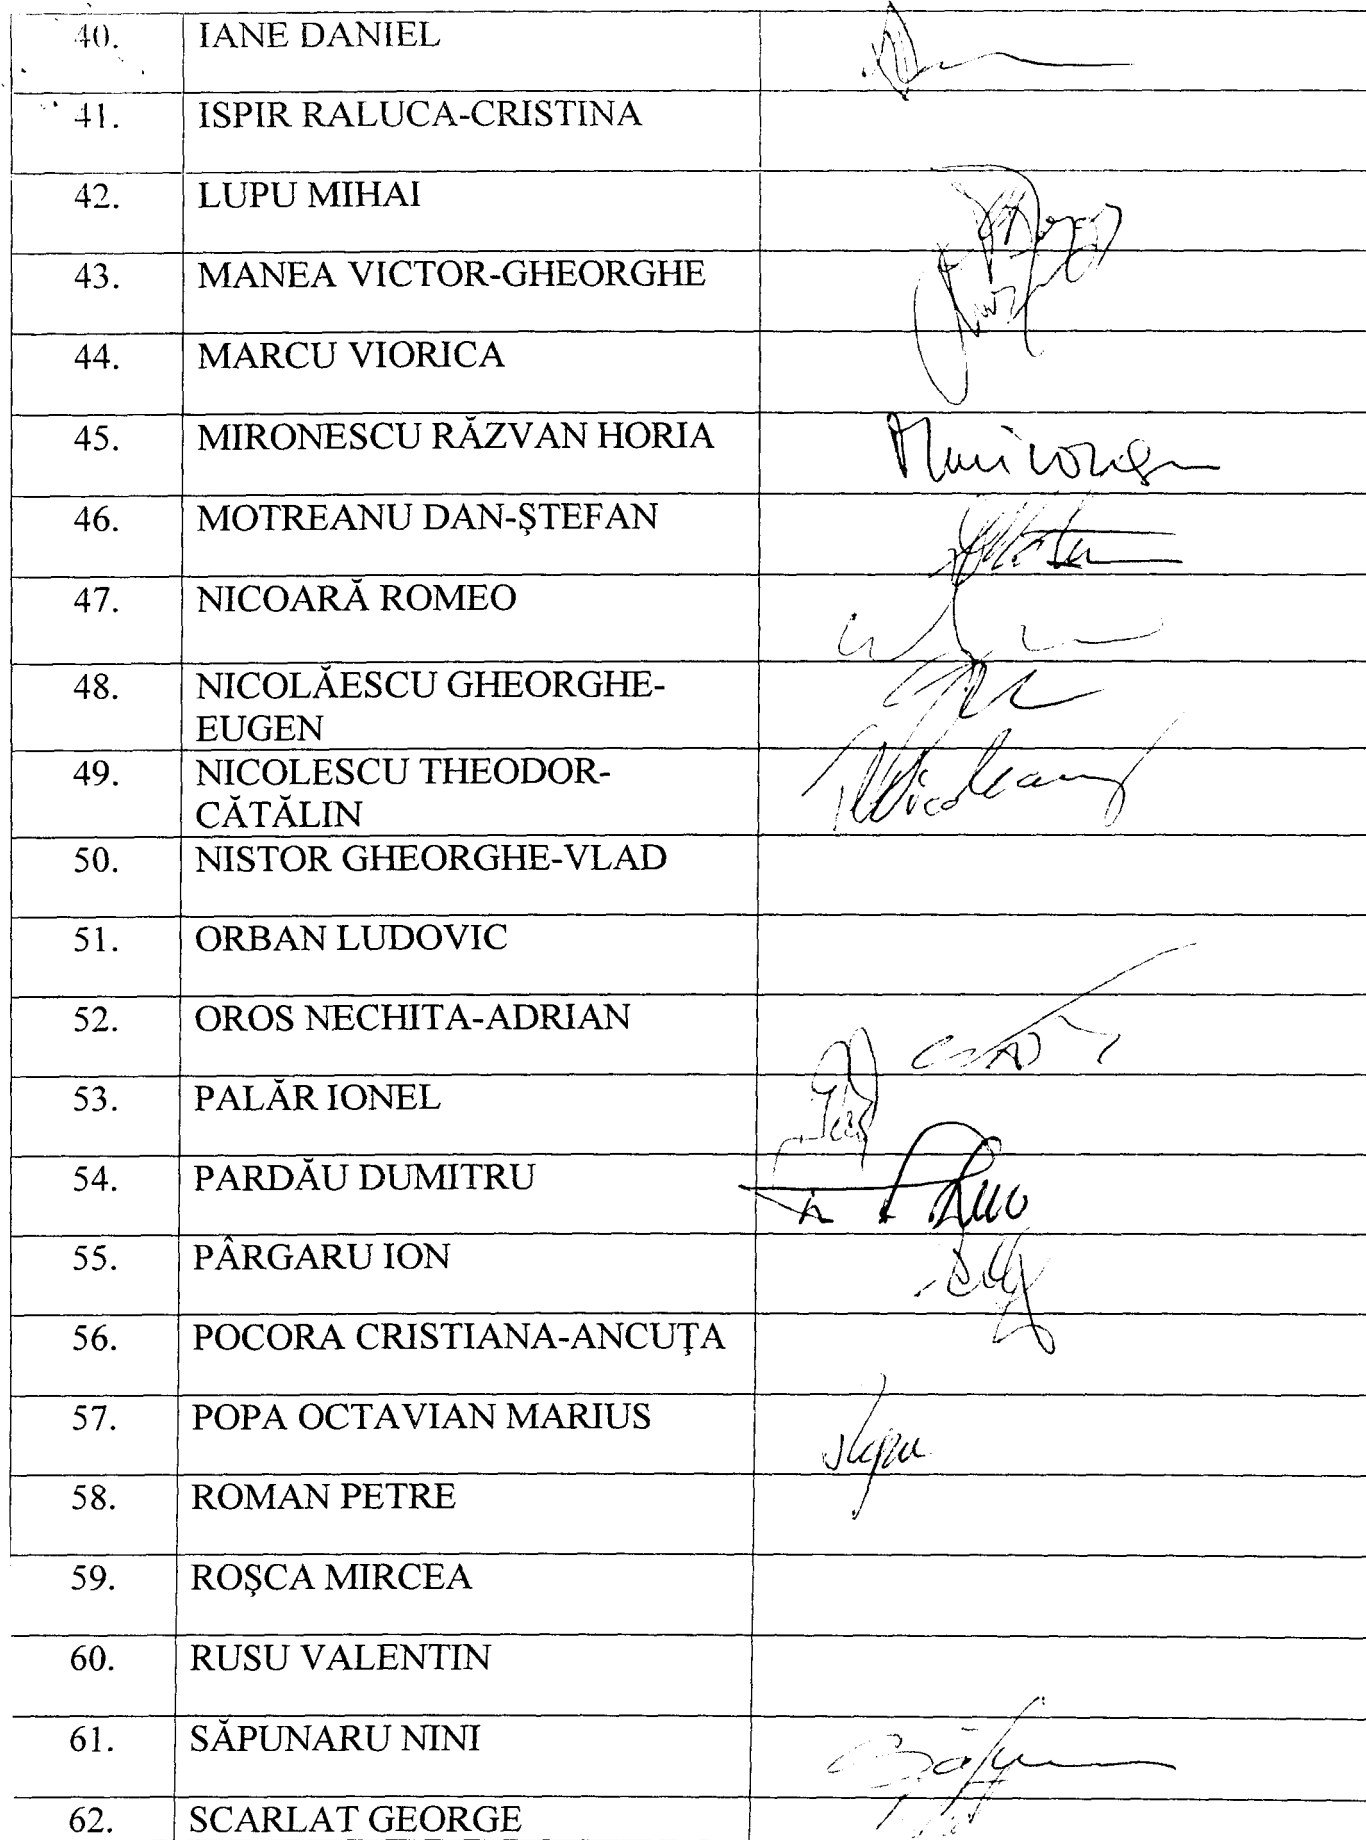 40. IANE DANIEL
41. ISPIR RALUCA-CRISTINA
42. LUPU MIHAI
43. MANEA VICTOR-GHEORGHE
44. MARCU VIORICA
45. MIRONESCU RĂZVAN HORIA
46. MOTREANU DAN-ŞTEFAN
47. NICOARĂ ROMEO
48. NICOLĂESCU GHEORGHE-
EUGEN
49. NICOLESCU THEODOR-
CĂTĂLIN
50. NISTOR GHEORGHE-VLAD
51. ORBAN LUDOVIC
52. OROS NECHITA-ADRIAN
53. PALĂR IONEL
54. PARDĂU DUMITRU
55. PÂRGARU ION
56. POCORA CRISTIANA-ANCUŢA
57. POPA OCTAVIAN MARIUS
58. ROMAN PETRE
59. ROŞCA MIRCEA
60. RUSU VALENTIN
61. SĂPUNARU NINI
62. SCARLAT GEORGE